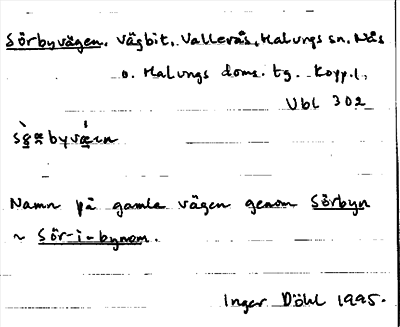 Sörbyvägen, vägbit, Vallerås, Malungs sn. Nås
o. Malungs doms. tg. Kopp. l.,
Ubl 302
Namn på gamla vägen genom Sörbyn
~ Sör-i-bynom.
Inger Döhl 1995.